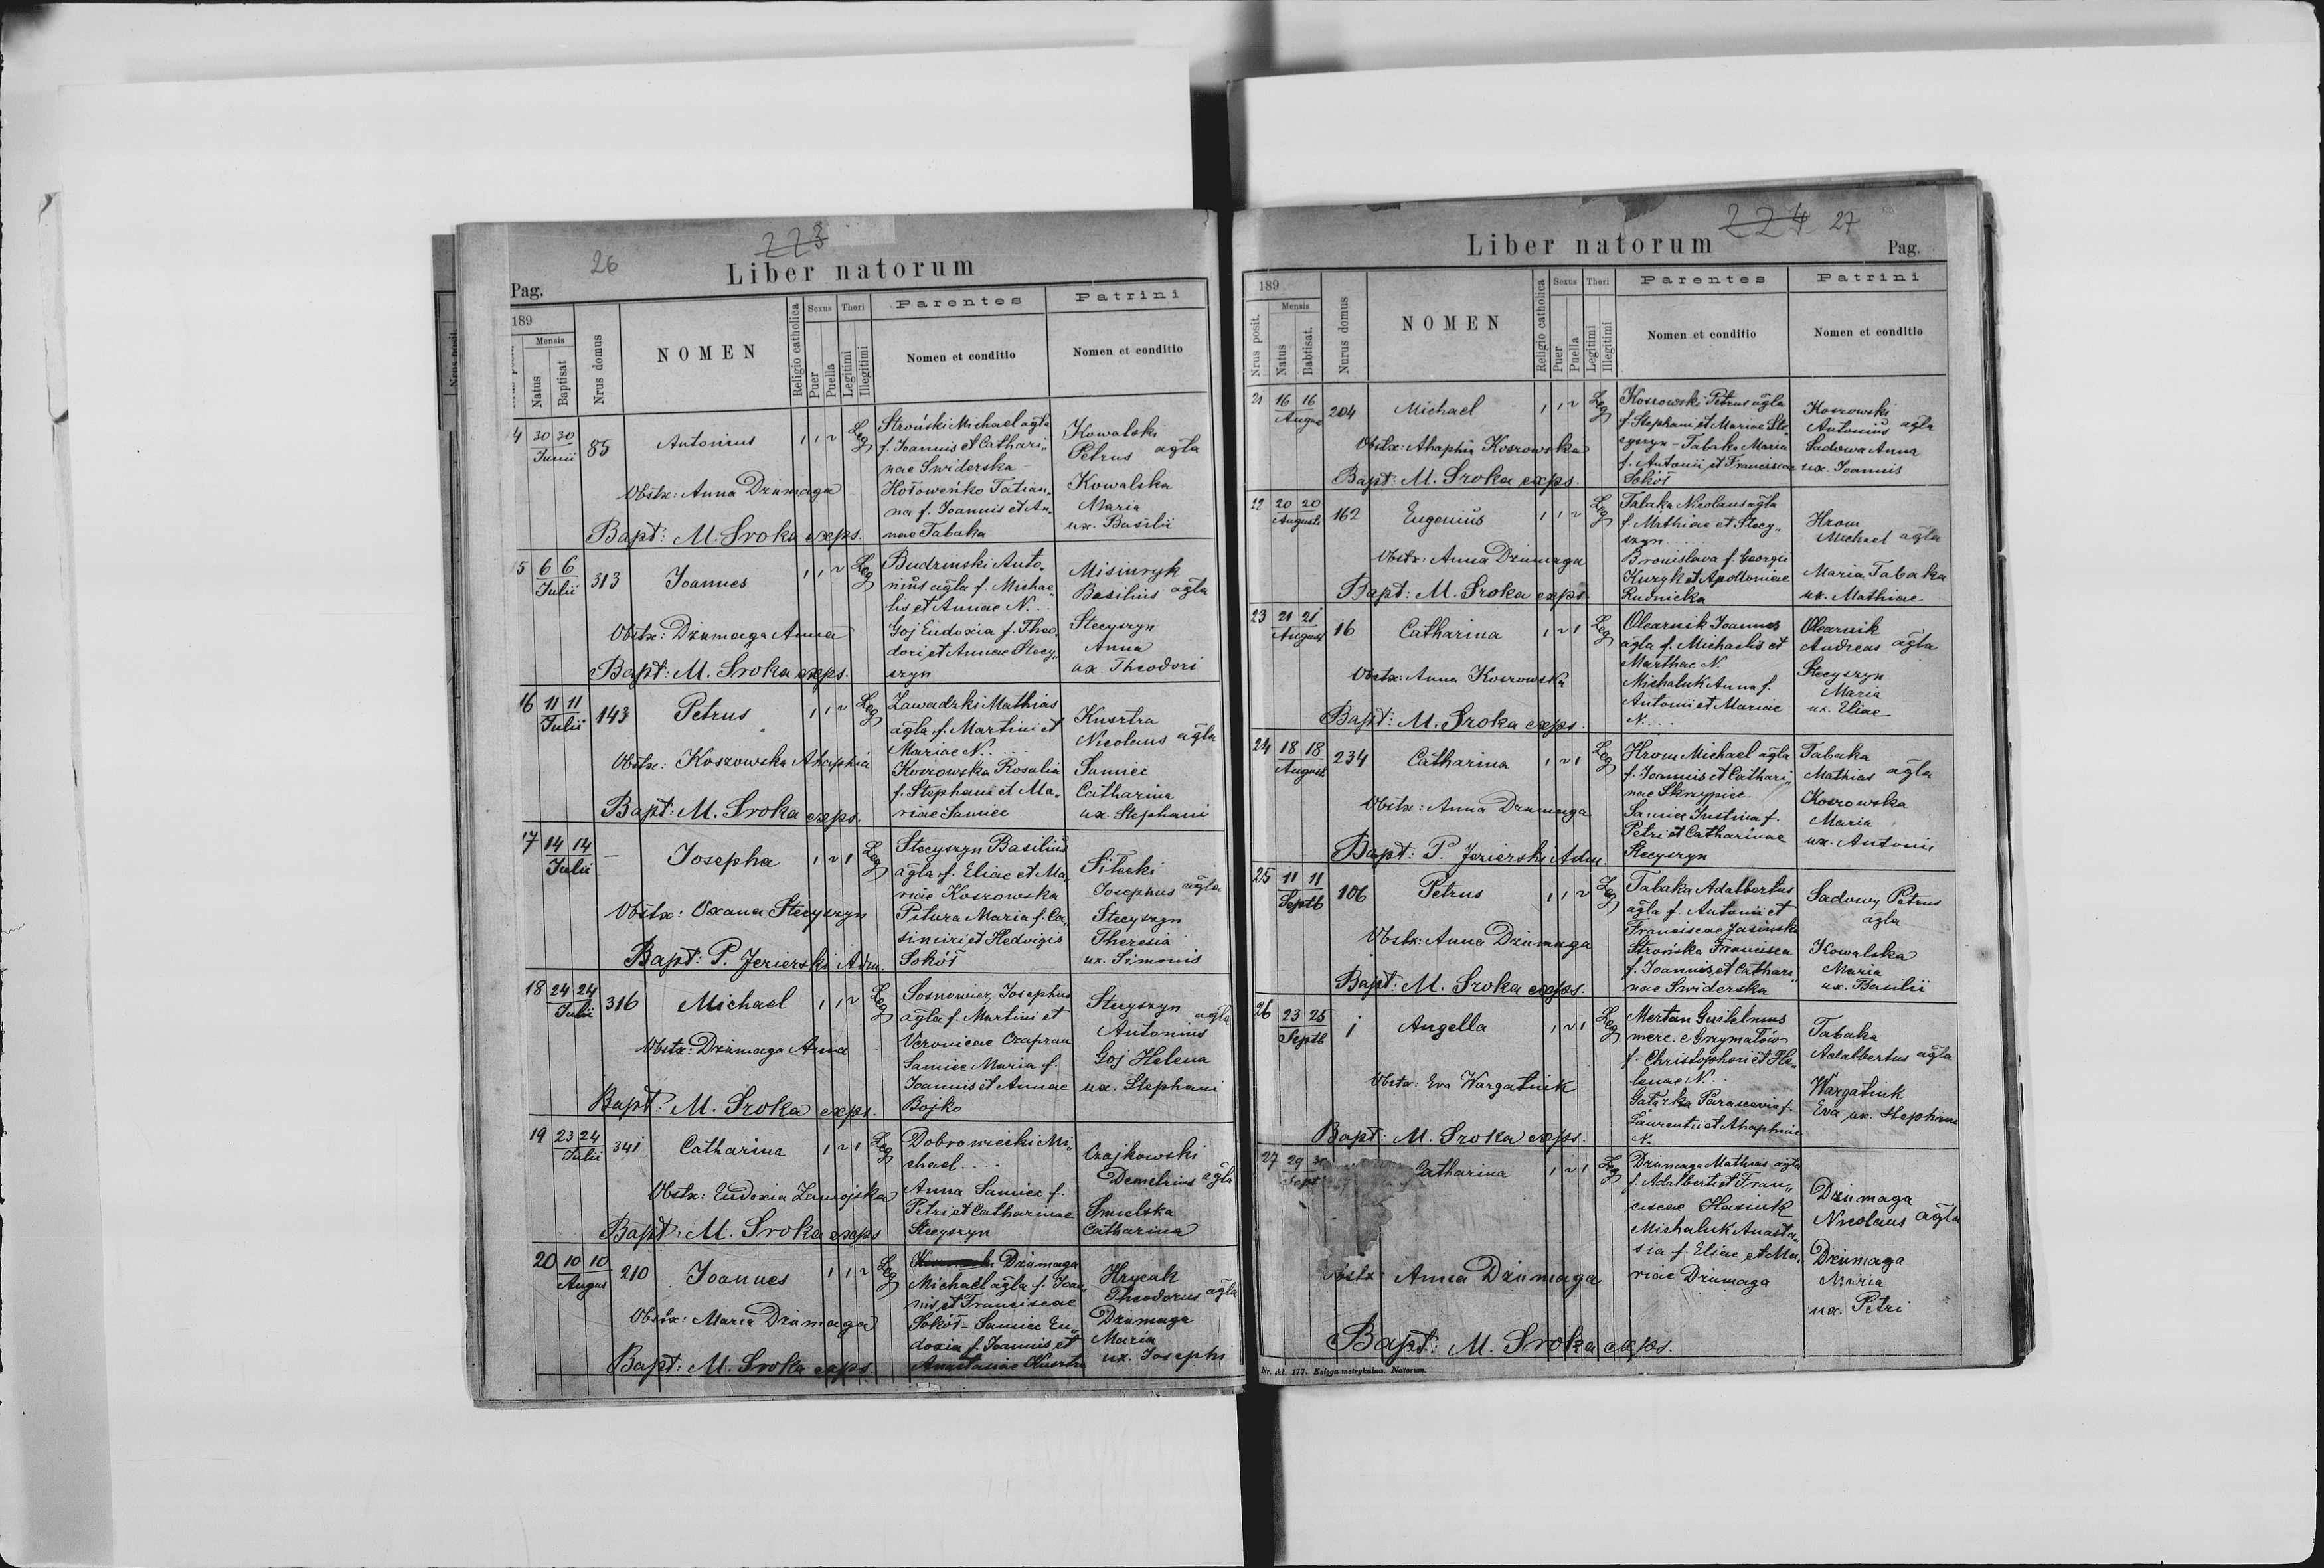 26
223
Pag.
Liber natorum
189
Mensis
Natus
Baptisat
Nrus domus
NOMEN
Religio catholica
Sexus
Puer
Puella
Thori
Legitimi
Illegitimi
Parentes
Nomen et conditio
Patrini
Nomen et conditio
4 30 30 Junii 85 Antonius 1 1 ~ Leg
Obstx: Anna Dziumaga
Bapt: M. Sroka exps.
Stroński Michael agla
f. Joannis et Cathari„
nae Swiderska –
Hołoweńko Tatian„
na f. Joannis et An„
nae Tabaka
Kowalski
Petrus agla
Kowalska
Maria
ux. Basilii
5 6 6 Julii 313 Joannes 1 1 ~ Leg
Obstx: Dziumaga Anna
Bapt: M. Sroka exps.
Budzinski Anto„
nius agla f. Michae„
lis et Annae N...
Goj Eudoxia f. Theo„
dori, et Annae Stecy„
szyn
Misiuryk
Basilius agla
Stecyszyn
Anna
ux. Theodori
16 11 11 Julii 143 Petrus 1 1 ~ Leg
Obstx: Koszowska Ahaphia
Bapt: M. Sroka exps.
Zawadzki Mathias
agla f. Martini et
Mariae N....
Koszowska Rosalia
f. Stephani et Ma„
riae Samiec
Kusztra
Nicolaus agla
Samiec
Catharina
ux. Stephani
17 14 14 Julii – Josepha 1 ~ 1 Leg
Obstx: Oxana Stecyszyn
Bapt: P. Jezierski Adm.
Stecyszyn Basilius
agla f. Eliae et Ma„
riae Koszowska
Pitura Maria f. Ca„
simiri et Hedvigis
Sokół
Sitecki
Josephus agla
Stecyszyn
Theresia
ux. Simonis
18 24 24 Julii 316 Michael 1 1 ~ Leg
Obstx: Dziumaga Anna
Bapt: M. Sroka exps.
Sosnowicz Josephus
agla f. Martini et
Veronicae Czapran
Samiec Maria f.
Joannis et Annae
Bojko
Stecyszyn agla
Antonius
Goj Helena
ux. Stephani
19 23 24 Julii 341 Catharina 1 ~ 1 Leg
Obstx: Eudoxia Zamojska
Bapt: M. Sroka exps
Dobrowieski Mi„
chael....
Anna Samiec f.
Petri et Catharinae
Stecyszyn
Czajkowski
Demetrius agla
Smielska
Catharina
20 10 10 Augus 210 Joannes 1 1 ~ Leg
Obstx: Maria Dziumaga
Bapt: M. Sroka exps.
Dziumaga
Michael agla f. Joan„
nis, et Franciscae
Sokół – Samiec Eu„
doxia f. Joannis, et
Anastasiae Kusztra
Hrycak
Theodorus agla
Dziumaga
Maria
ux. Josephi
224 27
Liber natorum
Pag.
189
Nrus posit.
Mensis
Natus
Babtisat.
Nurus domus
NOMEN
Religio catholica
Sexus
Puer
Puella
Thori
Legitimi
Illegitimi
Parentes
Nomen et conditio
Patrini
Nomen et conditio
21 16 16 August 204 Michael 1 1 ~ Leg
Obstx: Ahaphia Koszowska
Bapt: M. Sroka exps.
Koszowski Petrus agla
f. Stephani et Mariae Ste„
cyszyn – Tabaka Maria
f. Antonii, et Franciscae
Sokół
Koszowski
Antonius agla
Sadowa Anna
ux. Joannis
22 20 20 Augusti 162 Eugenius 1 1 ~ Leg
Obstx: Anna Dziumaga
Bapt: M. Sroka exps.
Tabaka Nicolaus agla
f. Mathiae et Stecy„
szyn....
Bronislava f. Georgii
Kuzyk et Apolloniae
Rudnicka
Hrom
Michael agla
Maria Tabaka
ux. Mathiae
23 21 21 August 16 Catharina 1 ~ 1 Leg
Obstx: Anna Koszowska
Bapt: M. Sroka exps.
Olearnik Joannes
agla f. Michaelis et
Marthae N.
Michaluk Anna f.
Antonii et Mariae
N....
Olearnik
Andreas agla
Stecyszyn
Maria
ux. Eliae
24 18 18 August 234 Catharina 1 ~ 1 Leg
Obstx: Anna Dziumaga
Bapt: P. Jezierski Adm.
Hrom Michael agla
f. Joannis et Cathari„
nae Skrzypiec.
Samiec Justina f.
Petri et Catharinae
Stecyszyn
Tabaka
Mathias agla
Koszowska
Maria
ux. Antonii
25 11 11 Septb 106 Petrus 1 1 ~ Leg
Obstx: Anna Dziumaga
Bapt: M. Sroka exps.
Tabaka Adalbertus
agla f. Antonii et
Franciscae Jasinska
Strońska Francisca
f. Joannis, et Cathari„
nae Swiderska
Sadowy Petrus
agla
Kowalska
Maria
ux. Basilii
26 23 25 Septb 1 Angella 1 ~ 1 Leg
Obstx: Eva Wargatiuk
Bapt: M. Sroka exps.
Mertan Guilelmus
merc. e Grzymałów
f. Christophori et He„
lenae N...
Gałązka Parascevia f.
Laurentii et Ahaphiae
N.
Tabaka
Adalbertus agla
Wargatiuk
Eva ux. Stephani
27 29 Sept Catharina 1 ~ 1 Leg
Obstx: Anna Dziumaga
Bapt: M. Sroka exps.
Dziumaga Mathias agla
f. Adalberti et Fran„
ciscae Hasiuk
Michaluk Anasta„
sia f. Eliae et Ma„
riae Dziumaga
Dziumaga
Nicolaus agla
Dziumaga
Maria
ux. Petri
Nr. skł. 177. Księga metrykalna. Natorum.